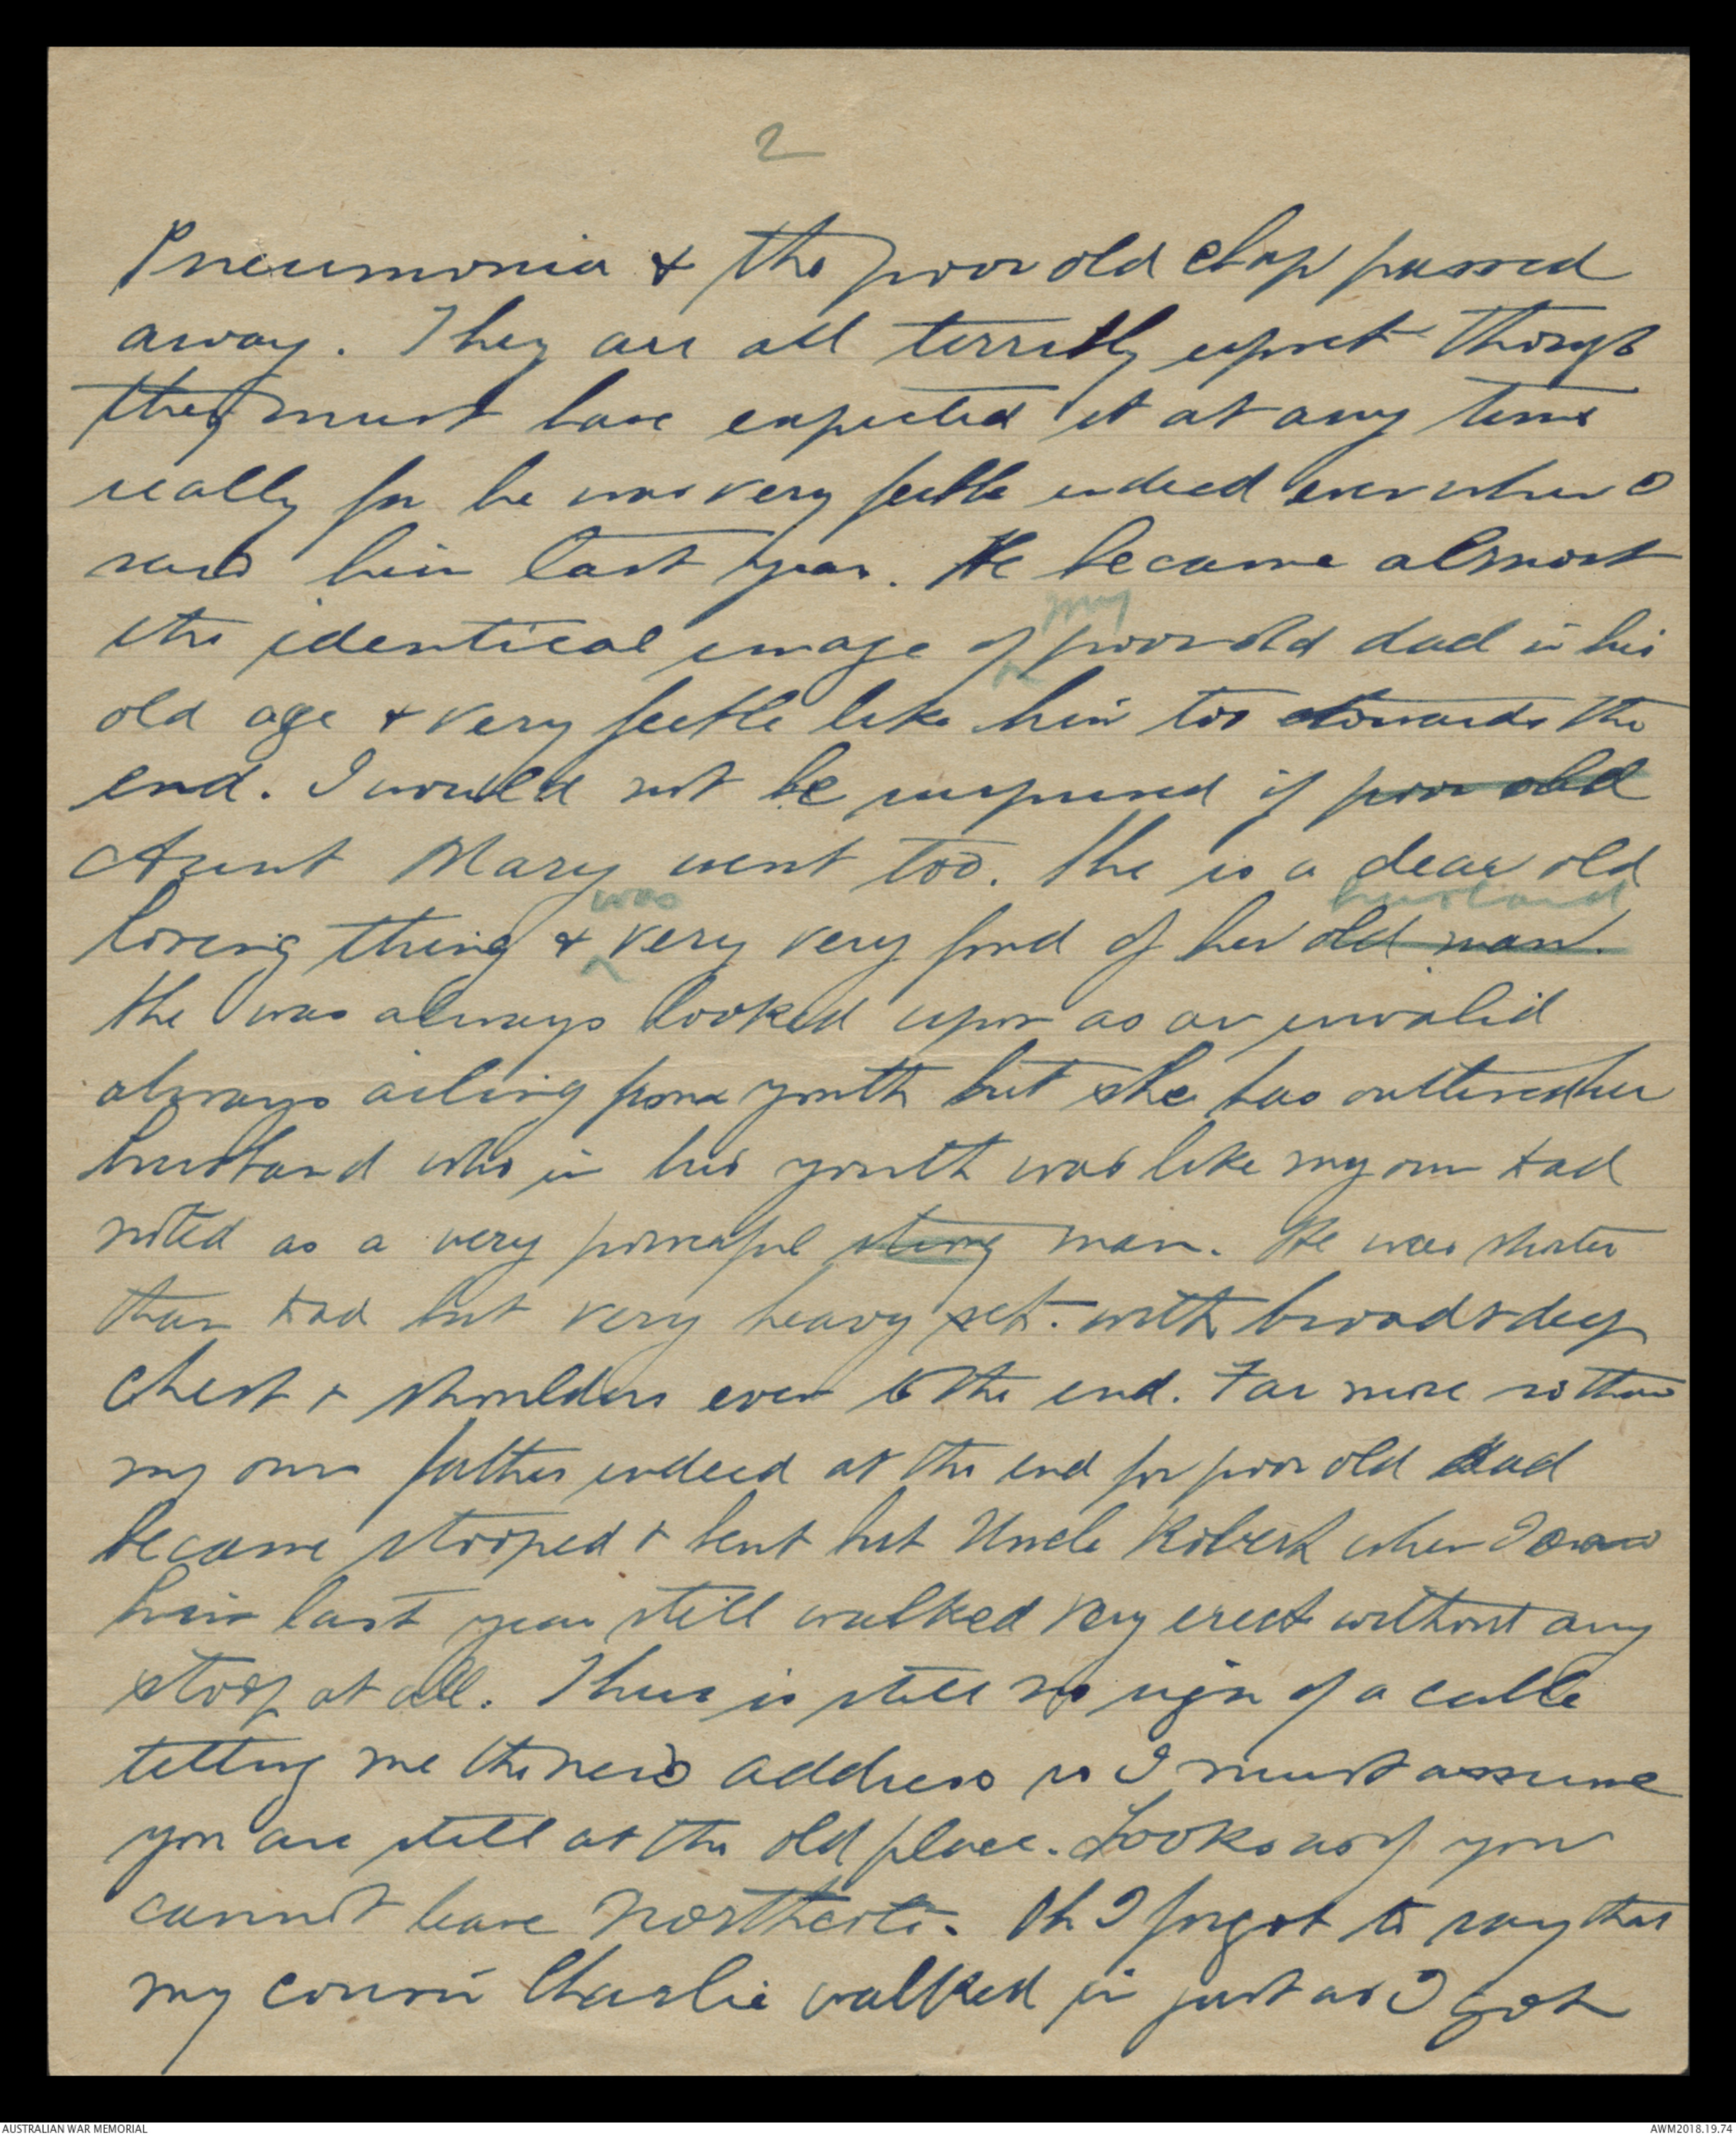 2
Pneumonia & the poor old chap passed
away. They are all terribly upset though
they must have expected it at any time
really for he was very feeble indeed even when I
saw him last year. He became almost
my
the identical image of poor old dad in his
old age & very feeble like him too towards the
end. I would not be surprised if poor old
Aunt Mary went too. She is a dear old
was husband
loving thing & very very fond of her old man.
She was always looked upon as an invalid
always ailing from youth but she has outlived her
husband who in his youth was like my own Dad
noted as a very powerful strong man. He was shorter
than Dad but very heavy set. with broad & deep
chest & shoulders even to the end. Far more so than
my own father indeed at the end for poor old Dad
became stooped & bent but Uncle Robert when I saw
him last year still walked very erect without any
stoop at all. There is still no sign of a cable
telling me the new address so I must assume
you are still at the old place. Looks as if you
cannot leave Northcote. Oh I forgot to say that
my cousin Charlie walked in just as I got
AUSTRALIAN WAR MEMORIAL
AWM2018.19.74